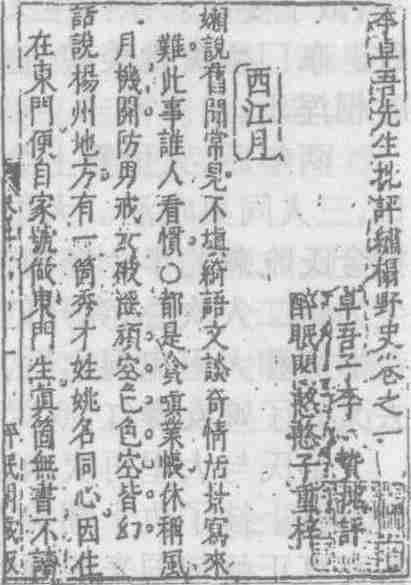 李卓吾先生批評繡榻野史卷之一
卓吾子李贄批評
醉眠閣憨憨子重梓
西江月
嫻說舊聞常見不填綺語文談奇情活景寫來
難此事誰人看慣○都是貪嗔業帳休稱風
月機關防男戒女破淫頑空色色空皆幻
話說楊州地方有一箇秀才姓姚名同心因住
在東門便自家號做東門生真箇無書不讀